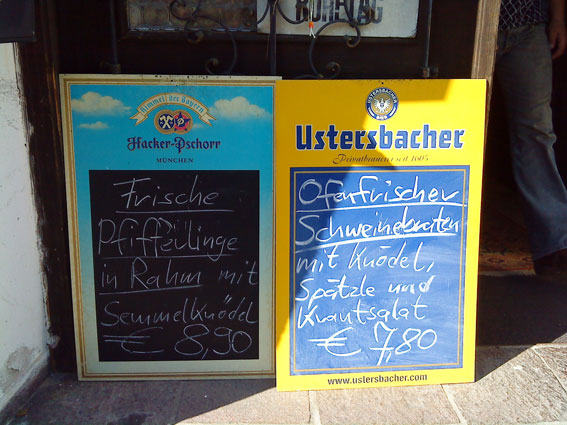 RUHETAG
Himmel der Bayern
Hacker-Pschorr
MÜNCHEN
Frische
Pfifferlinge
in Rahm mit
Semmelknödel
€ 8,90
USTERSBACHER
Ustersbacher
Privatbrauerei seit 1605
Ofenfrischer
Schweinebraten
mit Knödel,
Spätzle und
Krautsalat
€ 7,80
www.ustersbacher.com